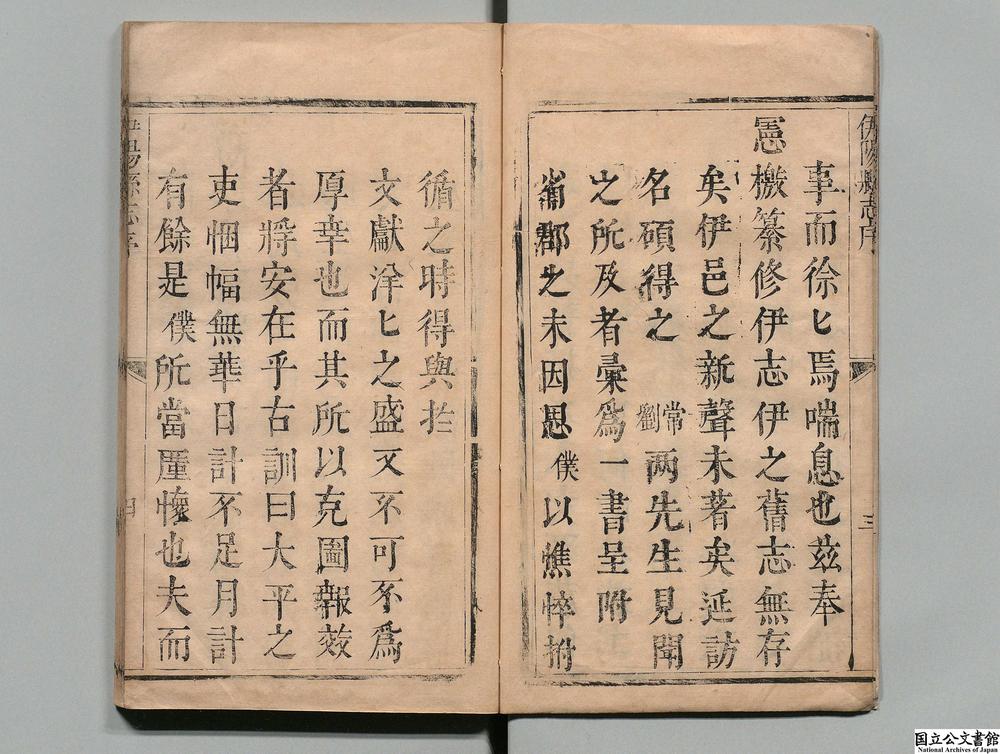 伊陽縣志序
三
事而徐匕焉喘息也茲奉
憲檄纂修伊志伊之舊志無存
矣伊邑之新聲未著矣延訪
名碩得之常劉兩先生見聞
之所及者彙爲一書呈附
省郡之末因思僕以憔悴拊
循之時得與於
文獻洋匕之盛又不可不爲
厚幸也而其所以克圖報效
者將安在乎古訓曰大平之
吏悃愊無華日計不足月計
有餘是僕所當厪懷也夫而
伊陽縣志序
四
国立公文書館
National Archives of Japan